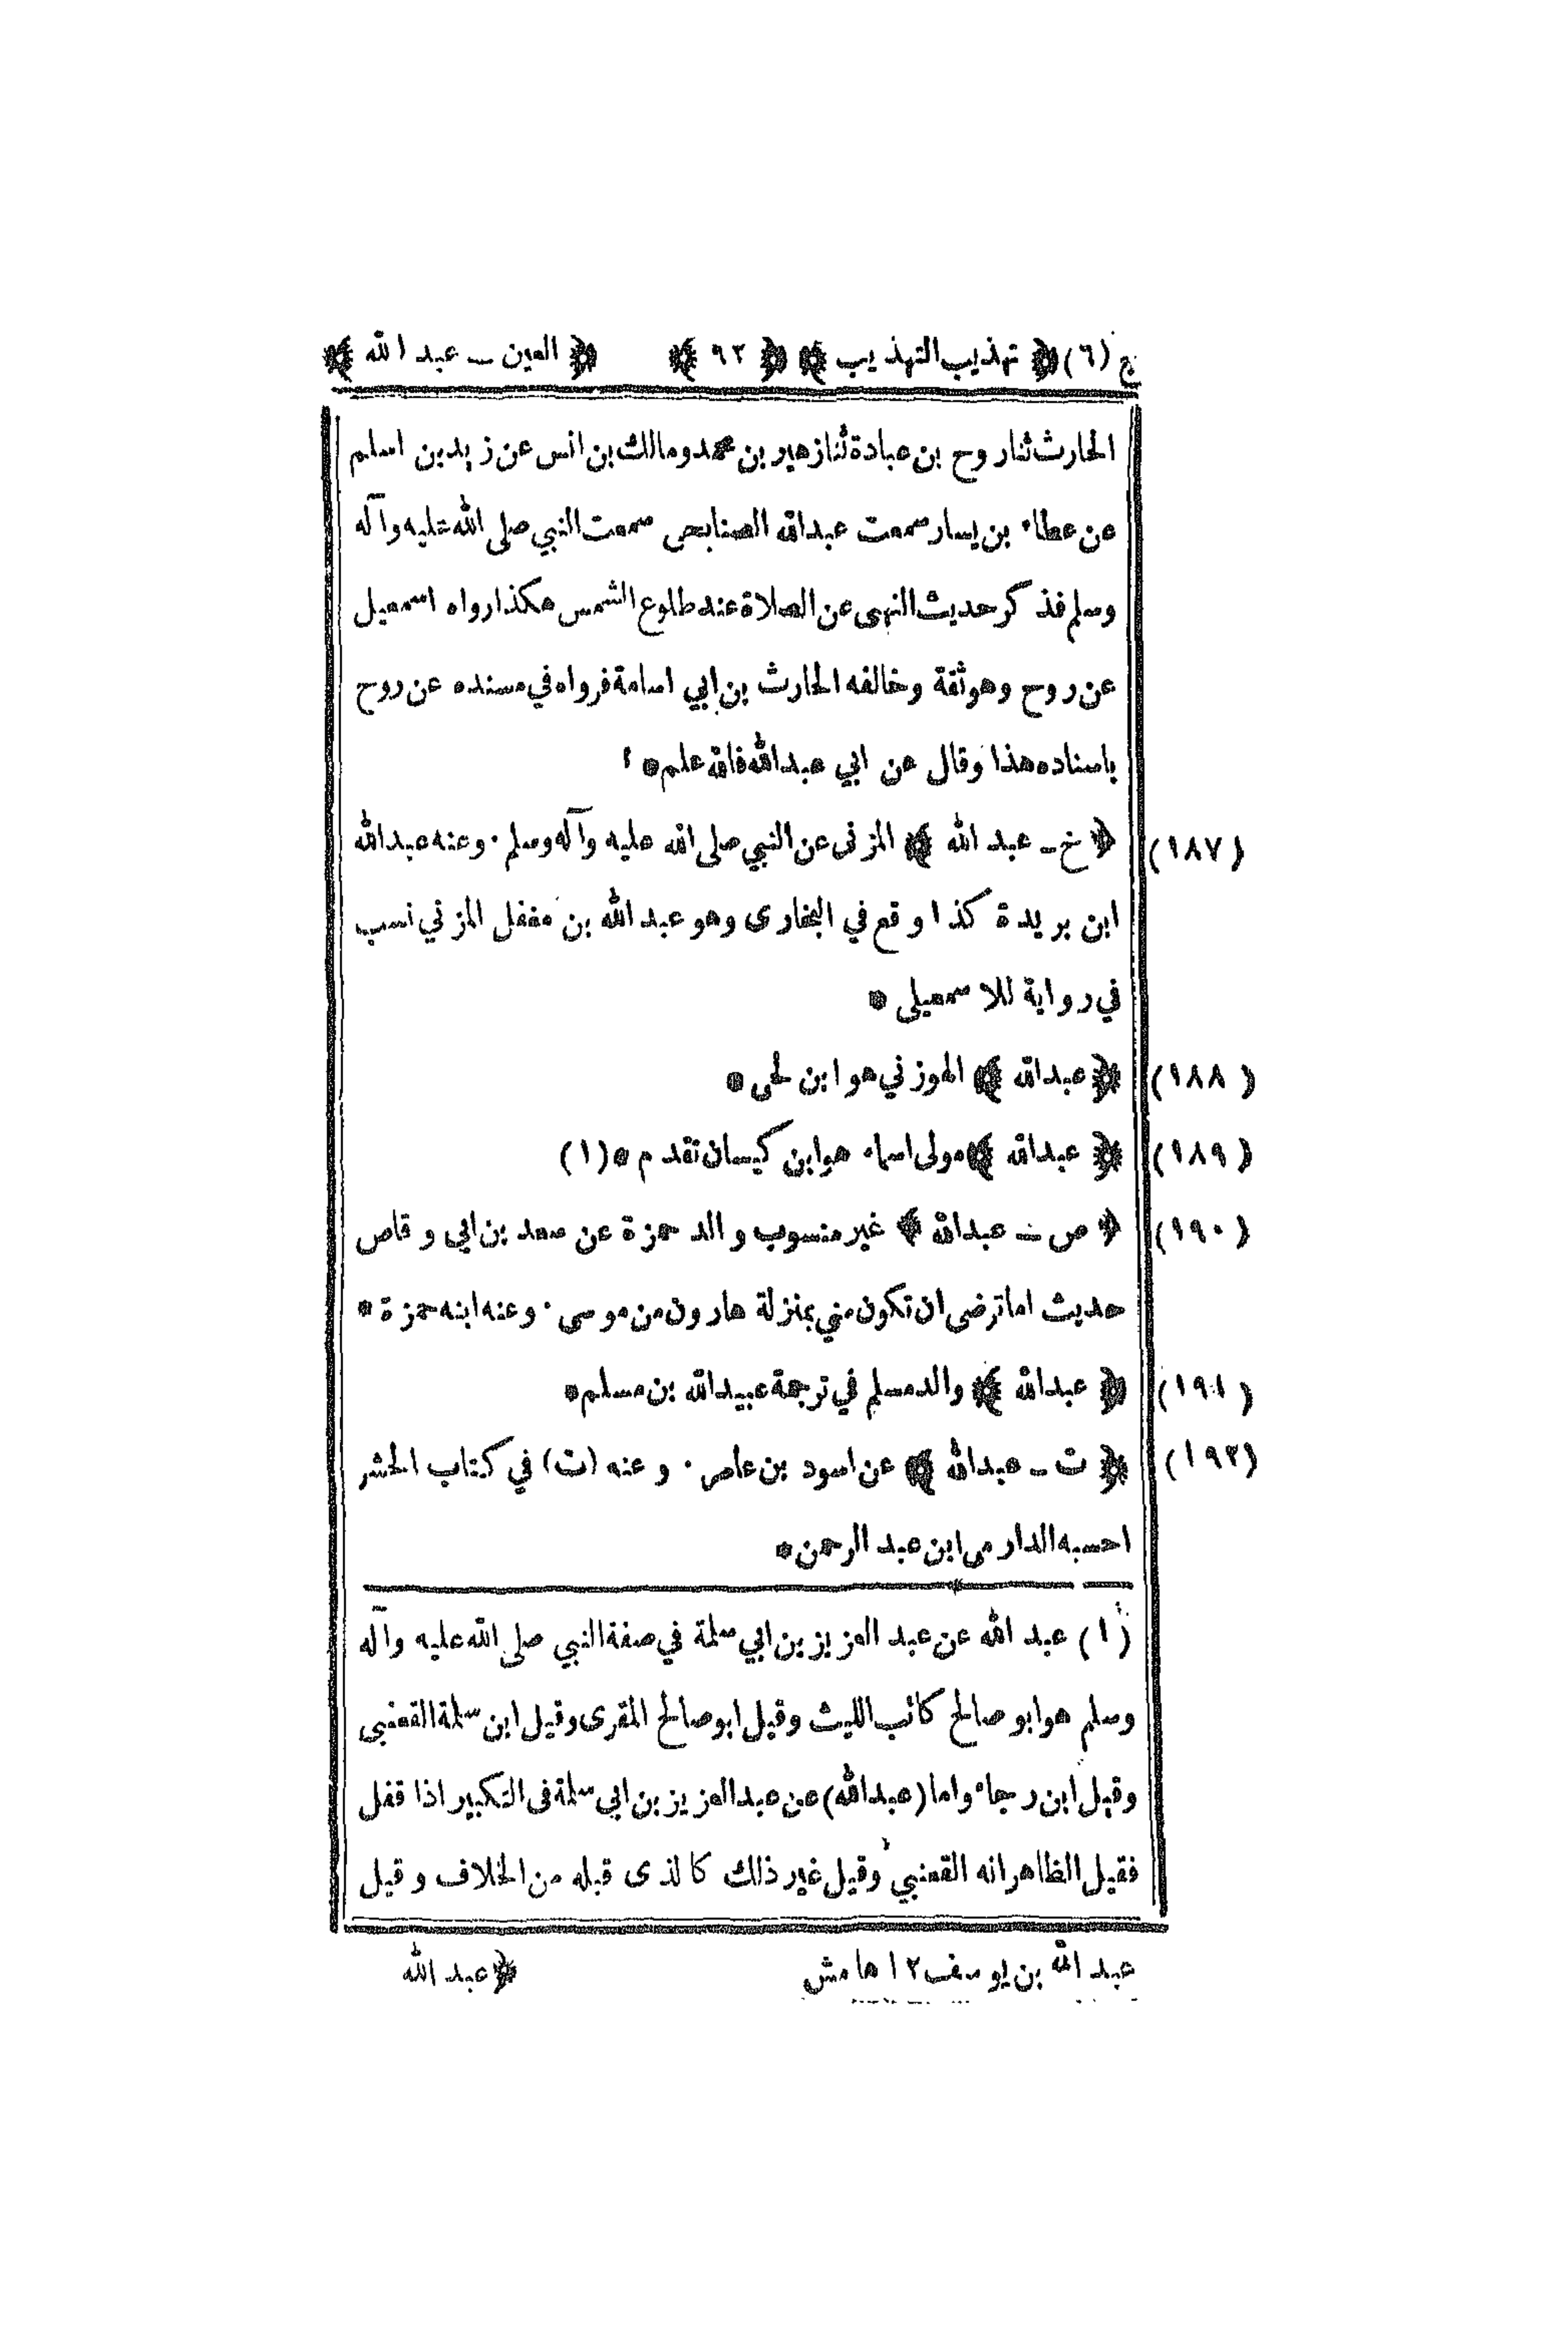 ج (٦) ﴿ تهذيب التهذيب ﴾ ﴿ ٩٢ ﴾ ﴿ العين ـ عبد الله ﴾
الحارث ثنا روح بن عبادة ثنا زهير بن محمد ومالك بن انس عن زيد بن اسلم
عن عطاء بن يسار سمعت عبدالله الصنابحي سمعت النبي صلى الله عليه وآله
وسلم فذكر حديث النهى عن الصلاة عند طلوع الشمس هكذا رواه اسمعيل
عن روح وهو ثقة وخالفه الحارث بن ابي اسامة فرواه في مسنده عن روح
باسناده هذا وقال عن ابي عبدالله فالله علم *
(١٨٧) ﴿ خ ـ عبد الله ﴾ المزنى عن النبي صلى الله عليه وآله وسلم . وعنه عبدالله
ابن بريدة كذا وقع في البخارى وهو عبد الله بن مغفل المزني نسب
في رواية للاسمعيلى *
(١٨٨) ﴿ عبدالله ﴾ الهوزني هو ابن لحى *
(١٨٩) ﴿ عبدالله ﴾ مولى اسماء هو ابن كيسان تقدم * (١)
(١٩٠) ﴿ ص ـ عبدالله ﴾ غير منسوب والد حمزة عن سعد بن ابي وقاص
حديث اما ترضى ان تكون مني بمنزلة هارون من موسى . وعنه ابنه حمزة *
(١٩١) ﴿ عبدالله ﴾ والد مسلم في ترجمة عبيدالله بن مسلم *
(١٩٢) ﴿ ت ـ عبدالله ﴾ عن اسود بن عامر . وعنه (ت) في كتاب الحشر
احسبه الدارمى ابن عبد الرحمن *
(١) عبد الله عن عبد العزيز بن ابي سلمة في صفة النبي صلى الله عليه وآله
وسلم هو ابو صالح كاتب الليث وقيل ابو صالح المقرى وقيل ابن سلمة القعنبي
وقيل ابن رجاء واما (عبدالله) عن عبد العزيز بن ابي سلمة فى التكبير اذا قفل
فقيل الظاهر انه القعنبي وقيل غير ذلك كالذى قبله من الخلاف وقيل
عبد الله بن يوسف ١٢ هامش
﴿ عبد الله